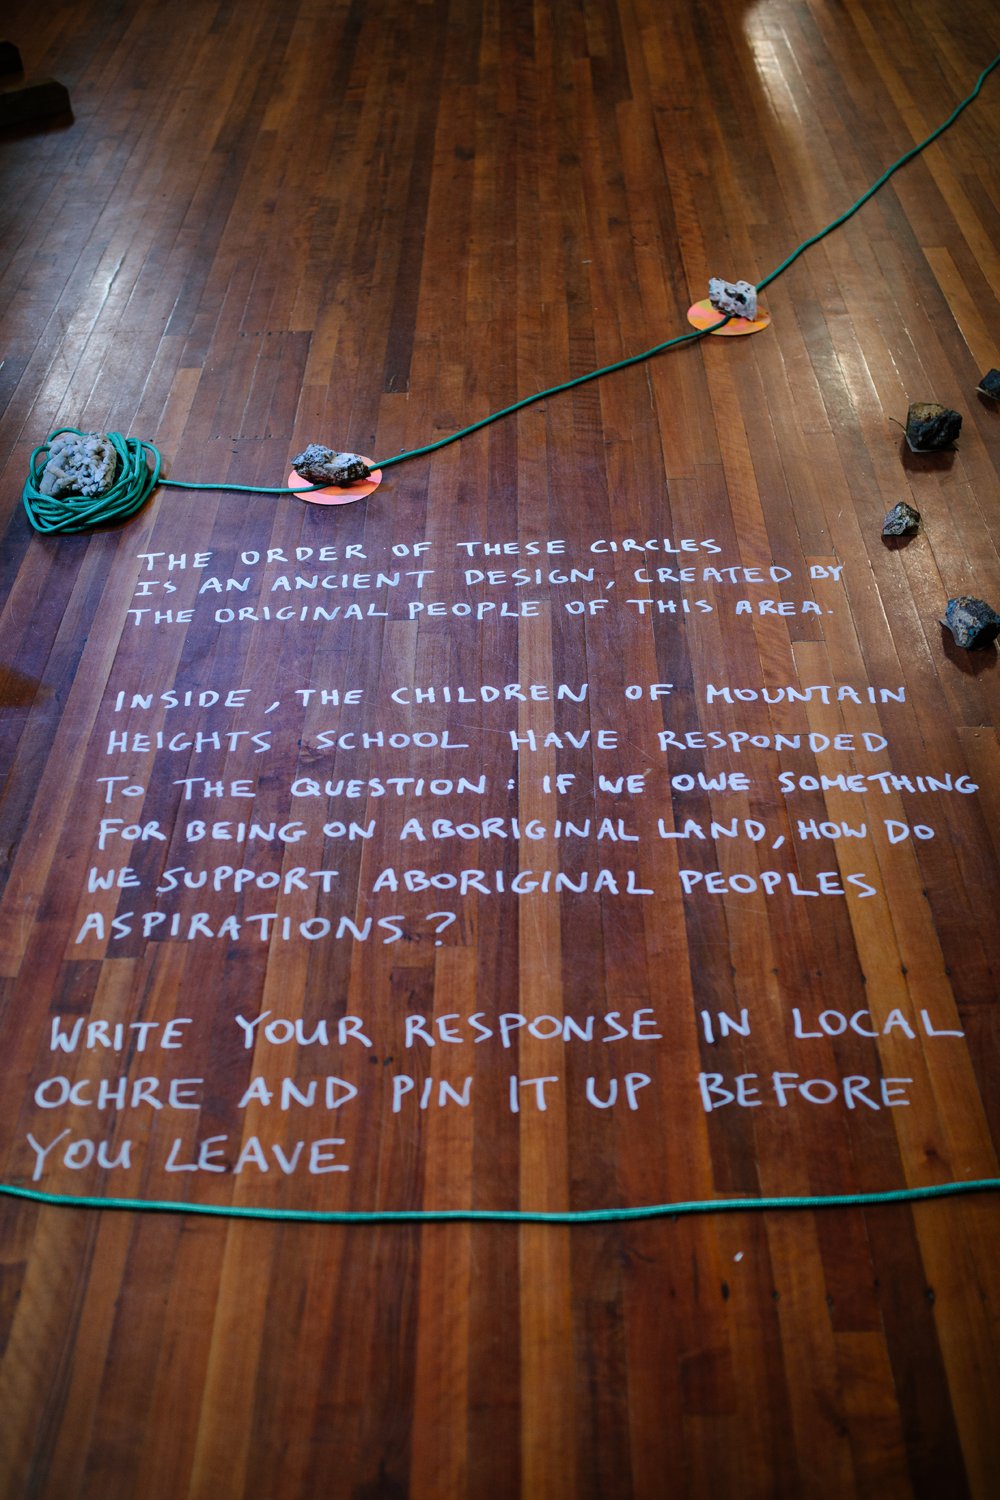 THE ORDER OF THESE CIRCLES
IS AN ANCIENT DESIGN, CREATED BY
THE ORIGINAL PEOPLE OF THIS AREA.
INSIDE, THE CHILDREN OF MOUNTAIN
HEIGHTS SCHOOL HAVE RESPONDED
TO THE QUESTION: IF WE OWE SOMETHING
FOR BEING ON ABORIGINAL LAND, HOW DO
WE SUPPORT ABORIGINAL PEOPLES
ASPIRATIONS?
WRITE YOUR RESPONSE IN LOCAL
OCHRE AND PIN IT UP BEFORE
YOU LEAVE